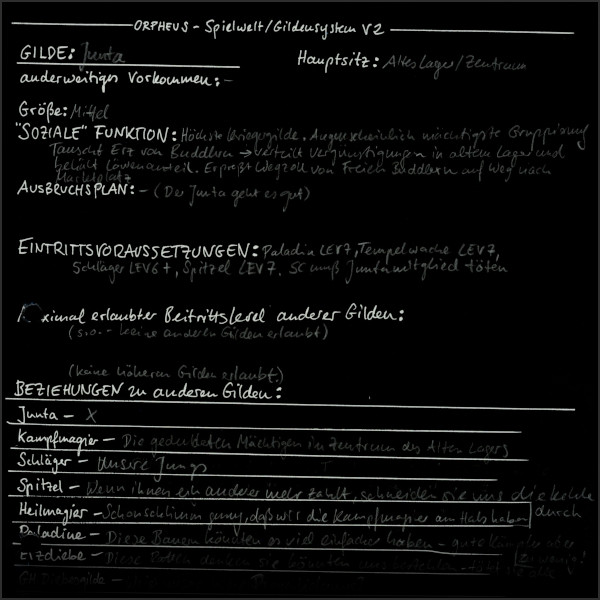 ORPHEUS - Spielwelt/Gildensystem V2
GILDE: Junta
Hauptsitz: Altes Lager/Zentrum
anderweitiges Vorkommen: -
Größe: Mittel
"SOZIALE" FUNKTION: Höchste Kriegergilde. Augenscheinlich mächtigste Gruppierung
Tauscht Erz von Buddlern → verteilt Vergünstigungen in altem Lager und
behält Löwenanteil. Erpreßt Wegzoll von Freien Buddlern auf Weg nach
Marktplatz
AUSBRUCHSPLAN: - (Der Junta geht es gut)
EINTRITTSVORAUSSETZUNGEN: Paladin LEV7, Tempelwache LEV7,
Schläger LEV6+, Spitzel LEV7. SC muß Juntamitglied töten
ximal erlaubter Beitrittslevel anderer Gilden:
(s.o. - keine anderen Gilden erlaubt)
(keine höheren Gilden erlaubt.)
BEZIEHUNGEN zu anderen Gilden:
Junta - X
Kampfmagier - Die geduldeten Mächtigen im Zentrum des Alten Lagers
Schläger - Unsere Jungs
Spitzel - Wenn ihnen ein anderer mehr zahlt, schneiden sie uns die Kehle
durch
Heilmagier - Schon schlimm genug, daß wir die Kampfmagier am Hals haben
Paladine - Diese Bauern könnten es viel einfacher haben - gute Kämpfer aber
Erzdiebe - Diese
GH Diebesgilde -